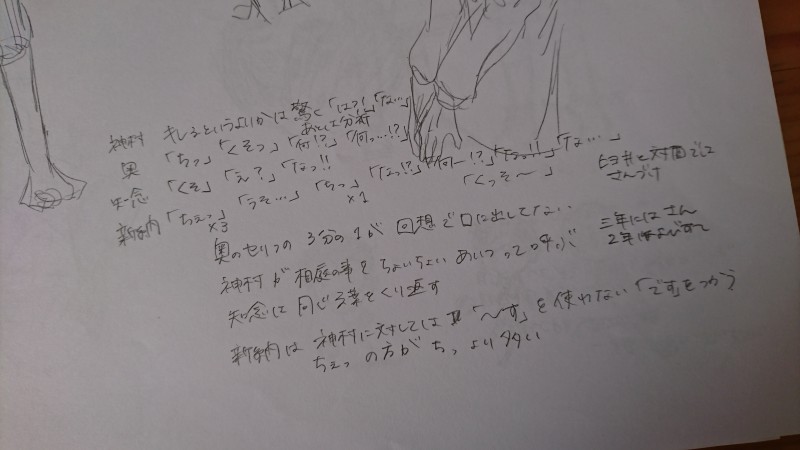 神村 キレるというよいかは驚く「はっ!」「な…」
あとして分析
奥 「ちっ」「くそっ」「何!?」「何っ…!?」
知念 「くそ」「え?」「なっ!!」
新納 「ちぇっ」「うそ…」「ちっ」「なっ!?」「何ー!?」「なっ!!」「な…」
×3 ×1 「くっそ〜」
ヒヨ井と対面でして
さんづけ
奥のセリフの3分の1が回想で口に出してない
神村が相庭の事をちょいちょいあいつって呼ぶ
三年にはさん
2年はよびすて
知念は同じ言葉をくり返す
新納は神村に対しては「〜す」を使わない「です」をつかう
ちぇっの方がちっより多い